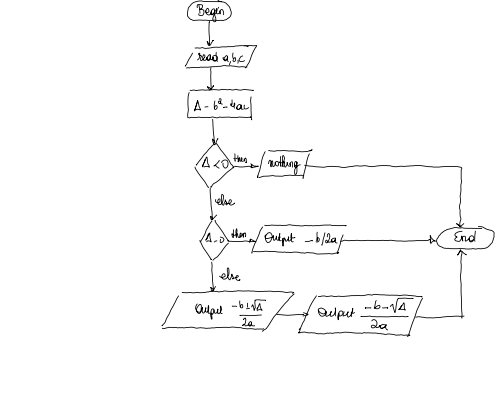 Begin
read a,b,c
Δ - b² - 4ac
Δ < 0
then
nothing
else
Δ = 0
then
Output - b/2a
End
else
Output -b+√Δ
2a
Output -b-√Δ
2a